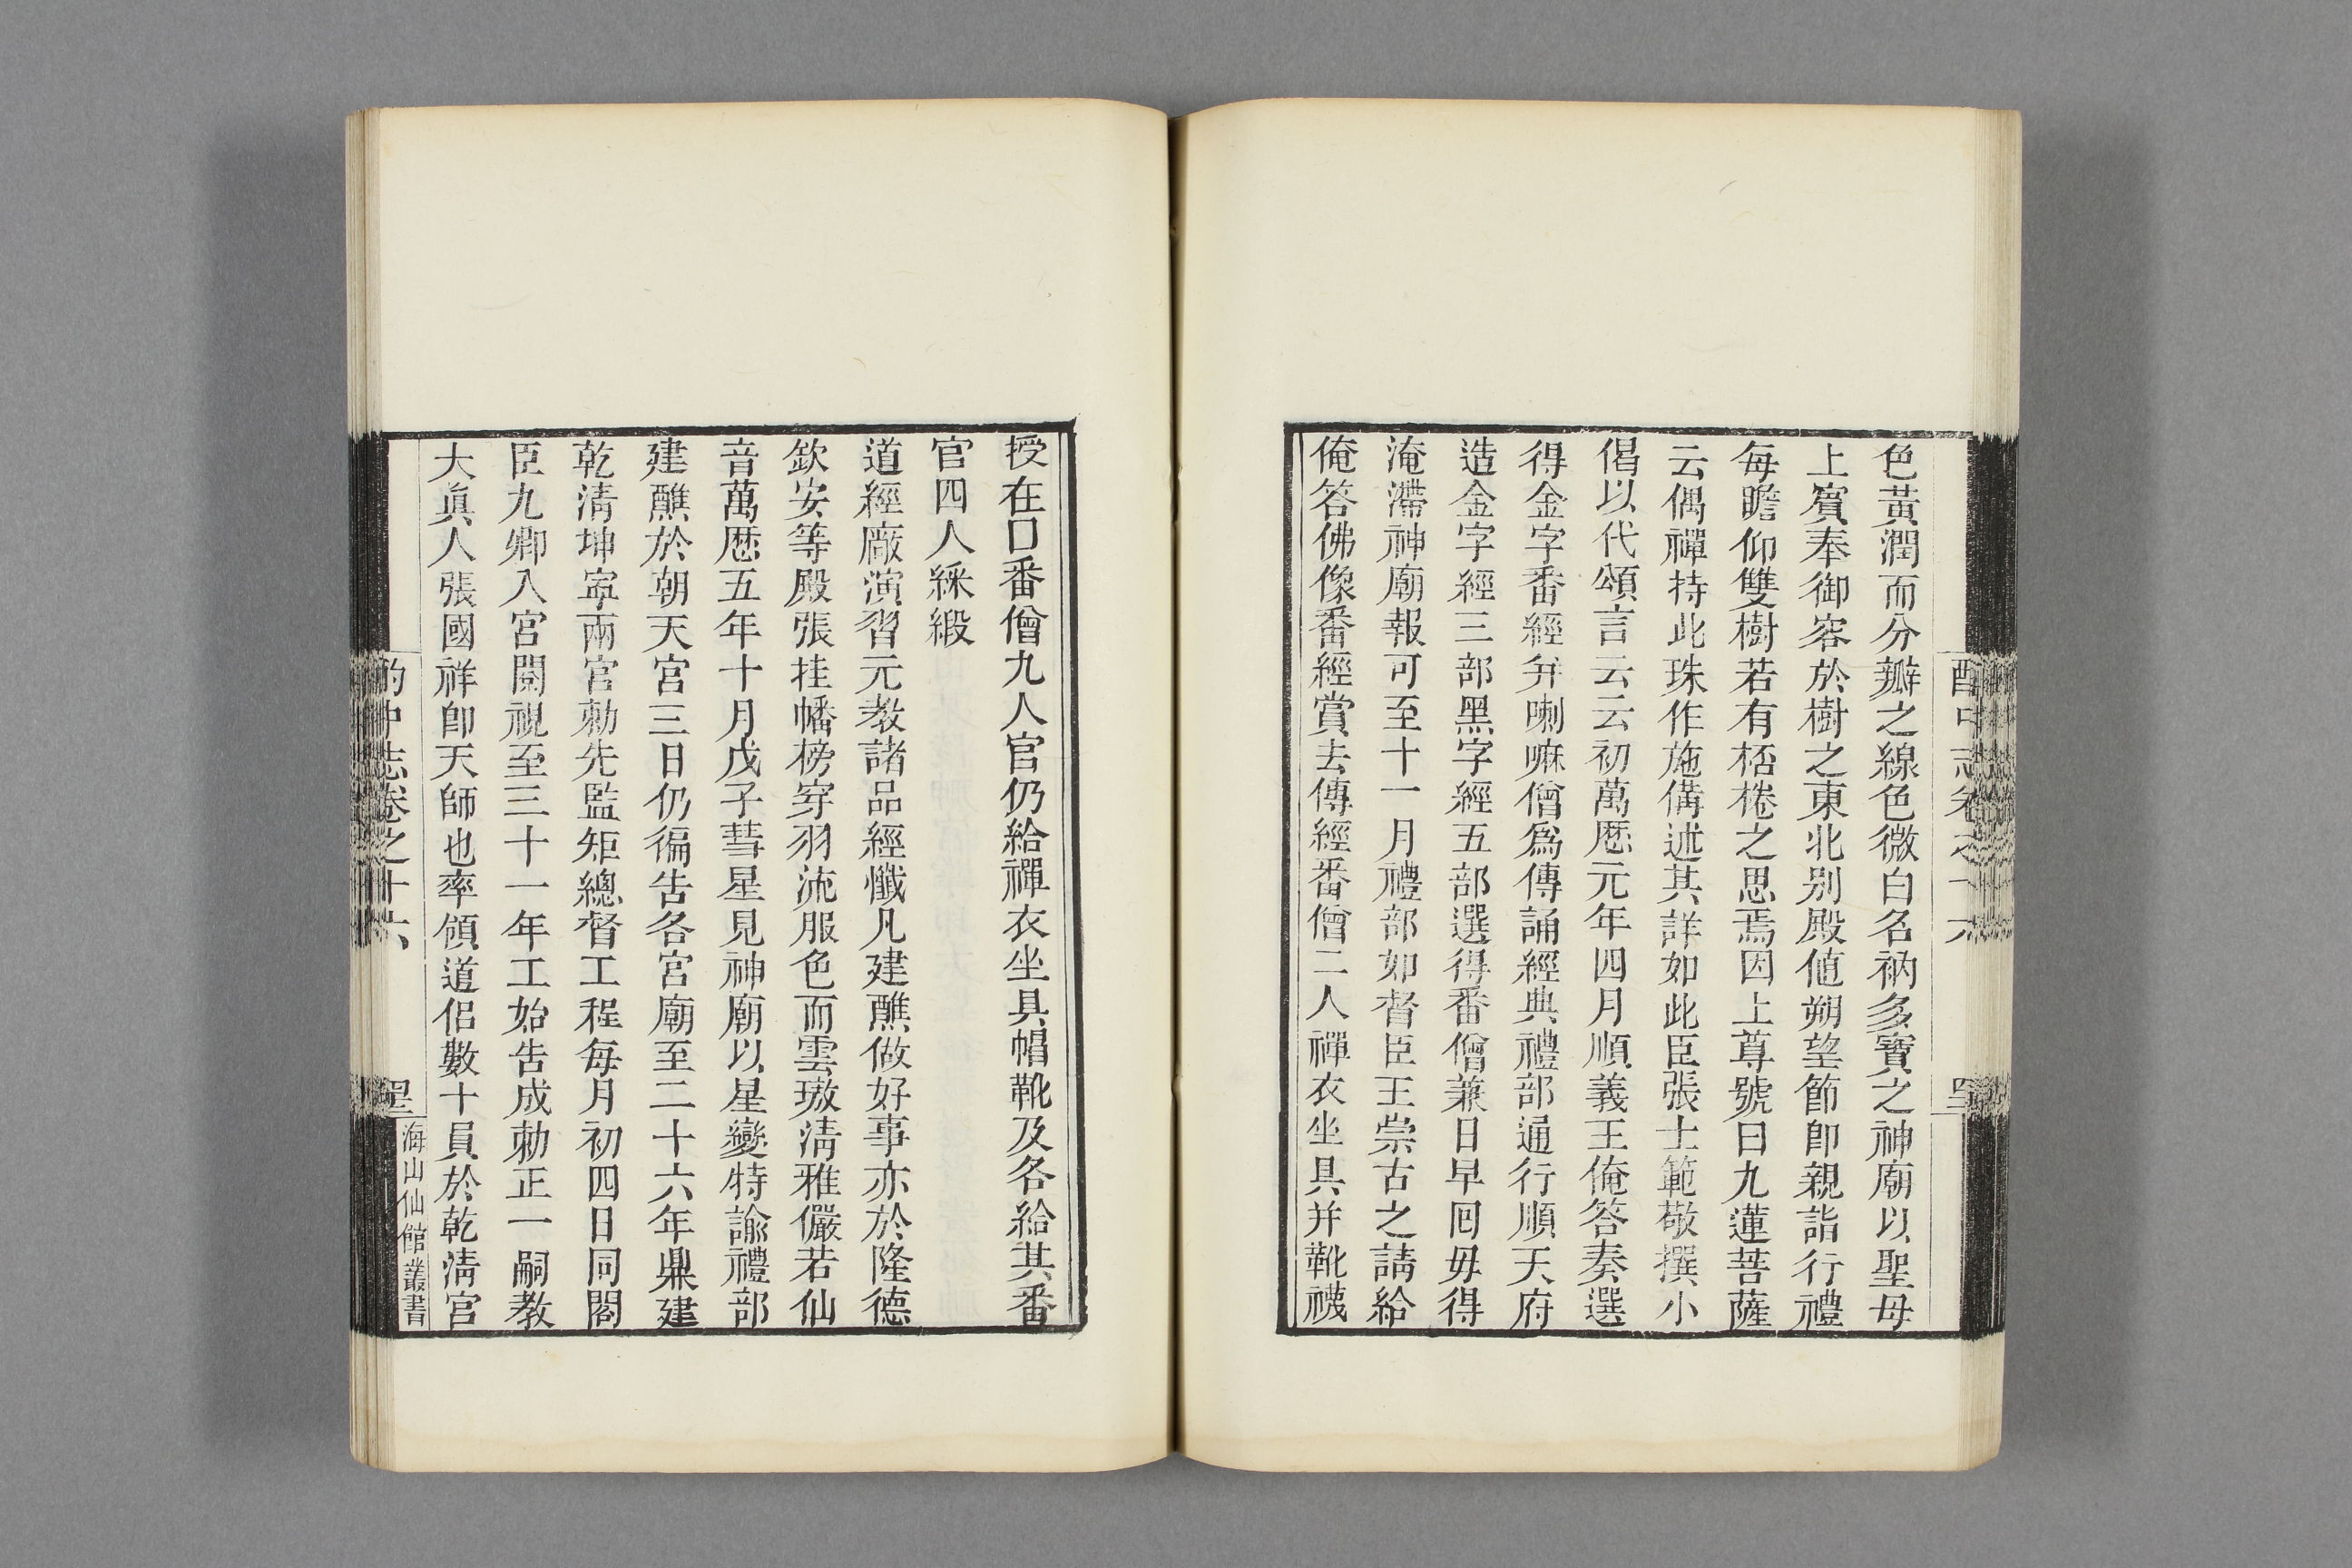 色黃潤而分瓣之線色微白名衲多寶之神廟以聖母
上賓奉御容於樹之東北别殿値朔望節卽親詣行禮
每瞻仰雙樹若有桮棬之思焉因上尊號曰九蓮菩薩
云偶禪持此珠作施僃述其詳如此臣張士範敬撰小
偈以代頌言云云初萬厯元年四月順義王俺答奏選
得金字番經幷喇嘛僧爲傳誦經典禮部通行順天府
造金字經三部黑字經五部選得番僧兼日早囘毋得
淹滯神廟報可至十一月禮部如督臣王崇古之請給
俺答佛像番經賞去傳經番僧二人禪衣坐具并靴襪
授在口番僧九人官仍給禪衣坐具帽靴及各給其番
官四人綵緞
道經廠演習元教諸品經懺凡建醮做好事亦於隆德
欽安等殿張挂幡榜穿羽流服色而雲璈淸雅儼若仙
音萬厯五年十月戊子彗星見神廟以星變特諭禮部
建醮於朝天宮三日仍徧告各宮廟至二十六年鼎建
乾淸坤寜兩宮勅先監矩總督工程每月初四日同閣
臣九卿入宮閱視至三十一年工始告成勅正一嗣教
大眞人張國祥卽天師也率領道侶數十員於乾淸宮
酌中志卷之十六
海山仙館叢書